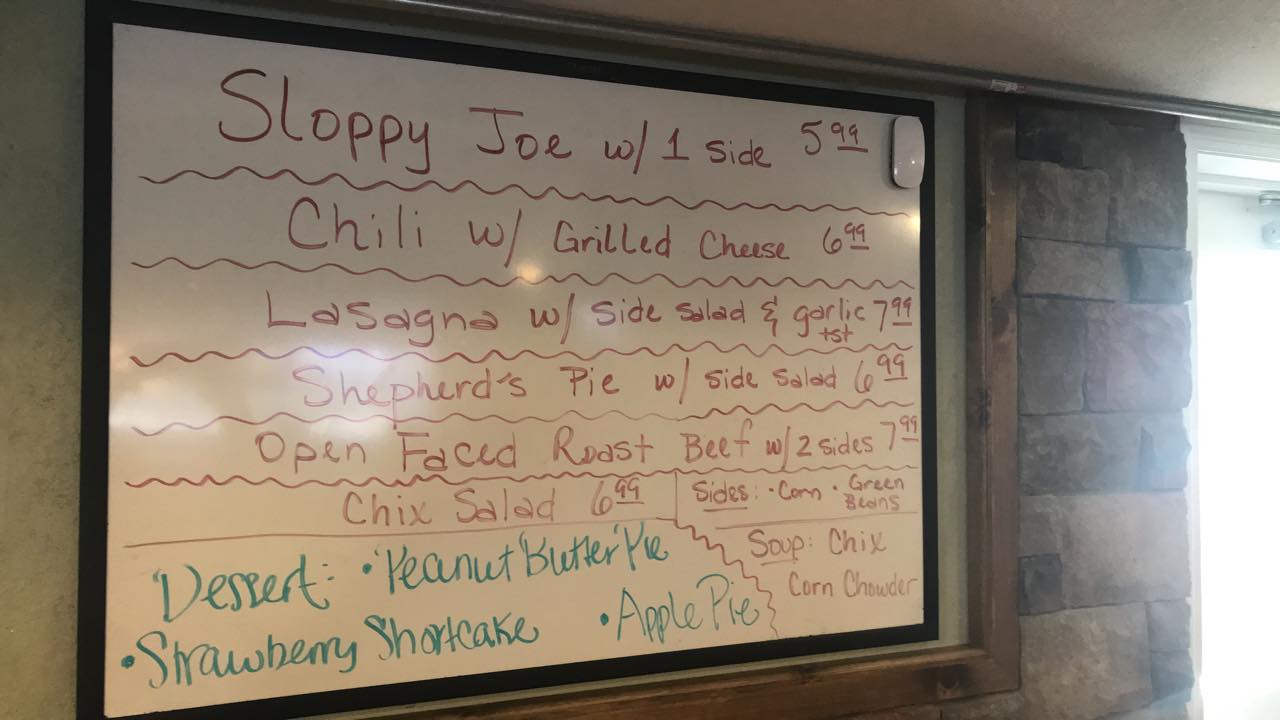 Sloppy Joe w/ 1 side 5 99
Chili w/ Grilled Cheese 6 99
Lasagna w/ side salad & garlic 7 99
tst
Shepherd's Pie w/ side salad 6 99
Open Faced Roast Beef w/ 2 sides 7 99
Chix Salad 6 99
Sides: • Corn • Green
Beans
Soup: Chix
Corn Chowder
Dessert: • Peanut Butter Pie
• Strawberry Shortcake • Apple Pie